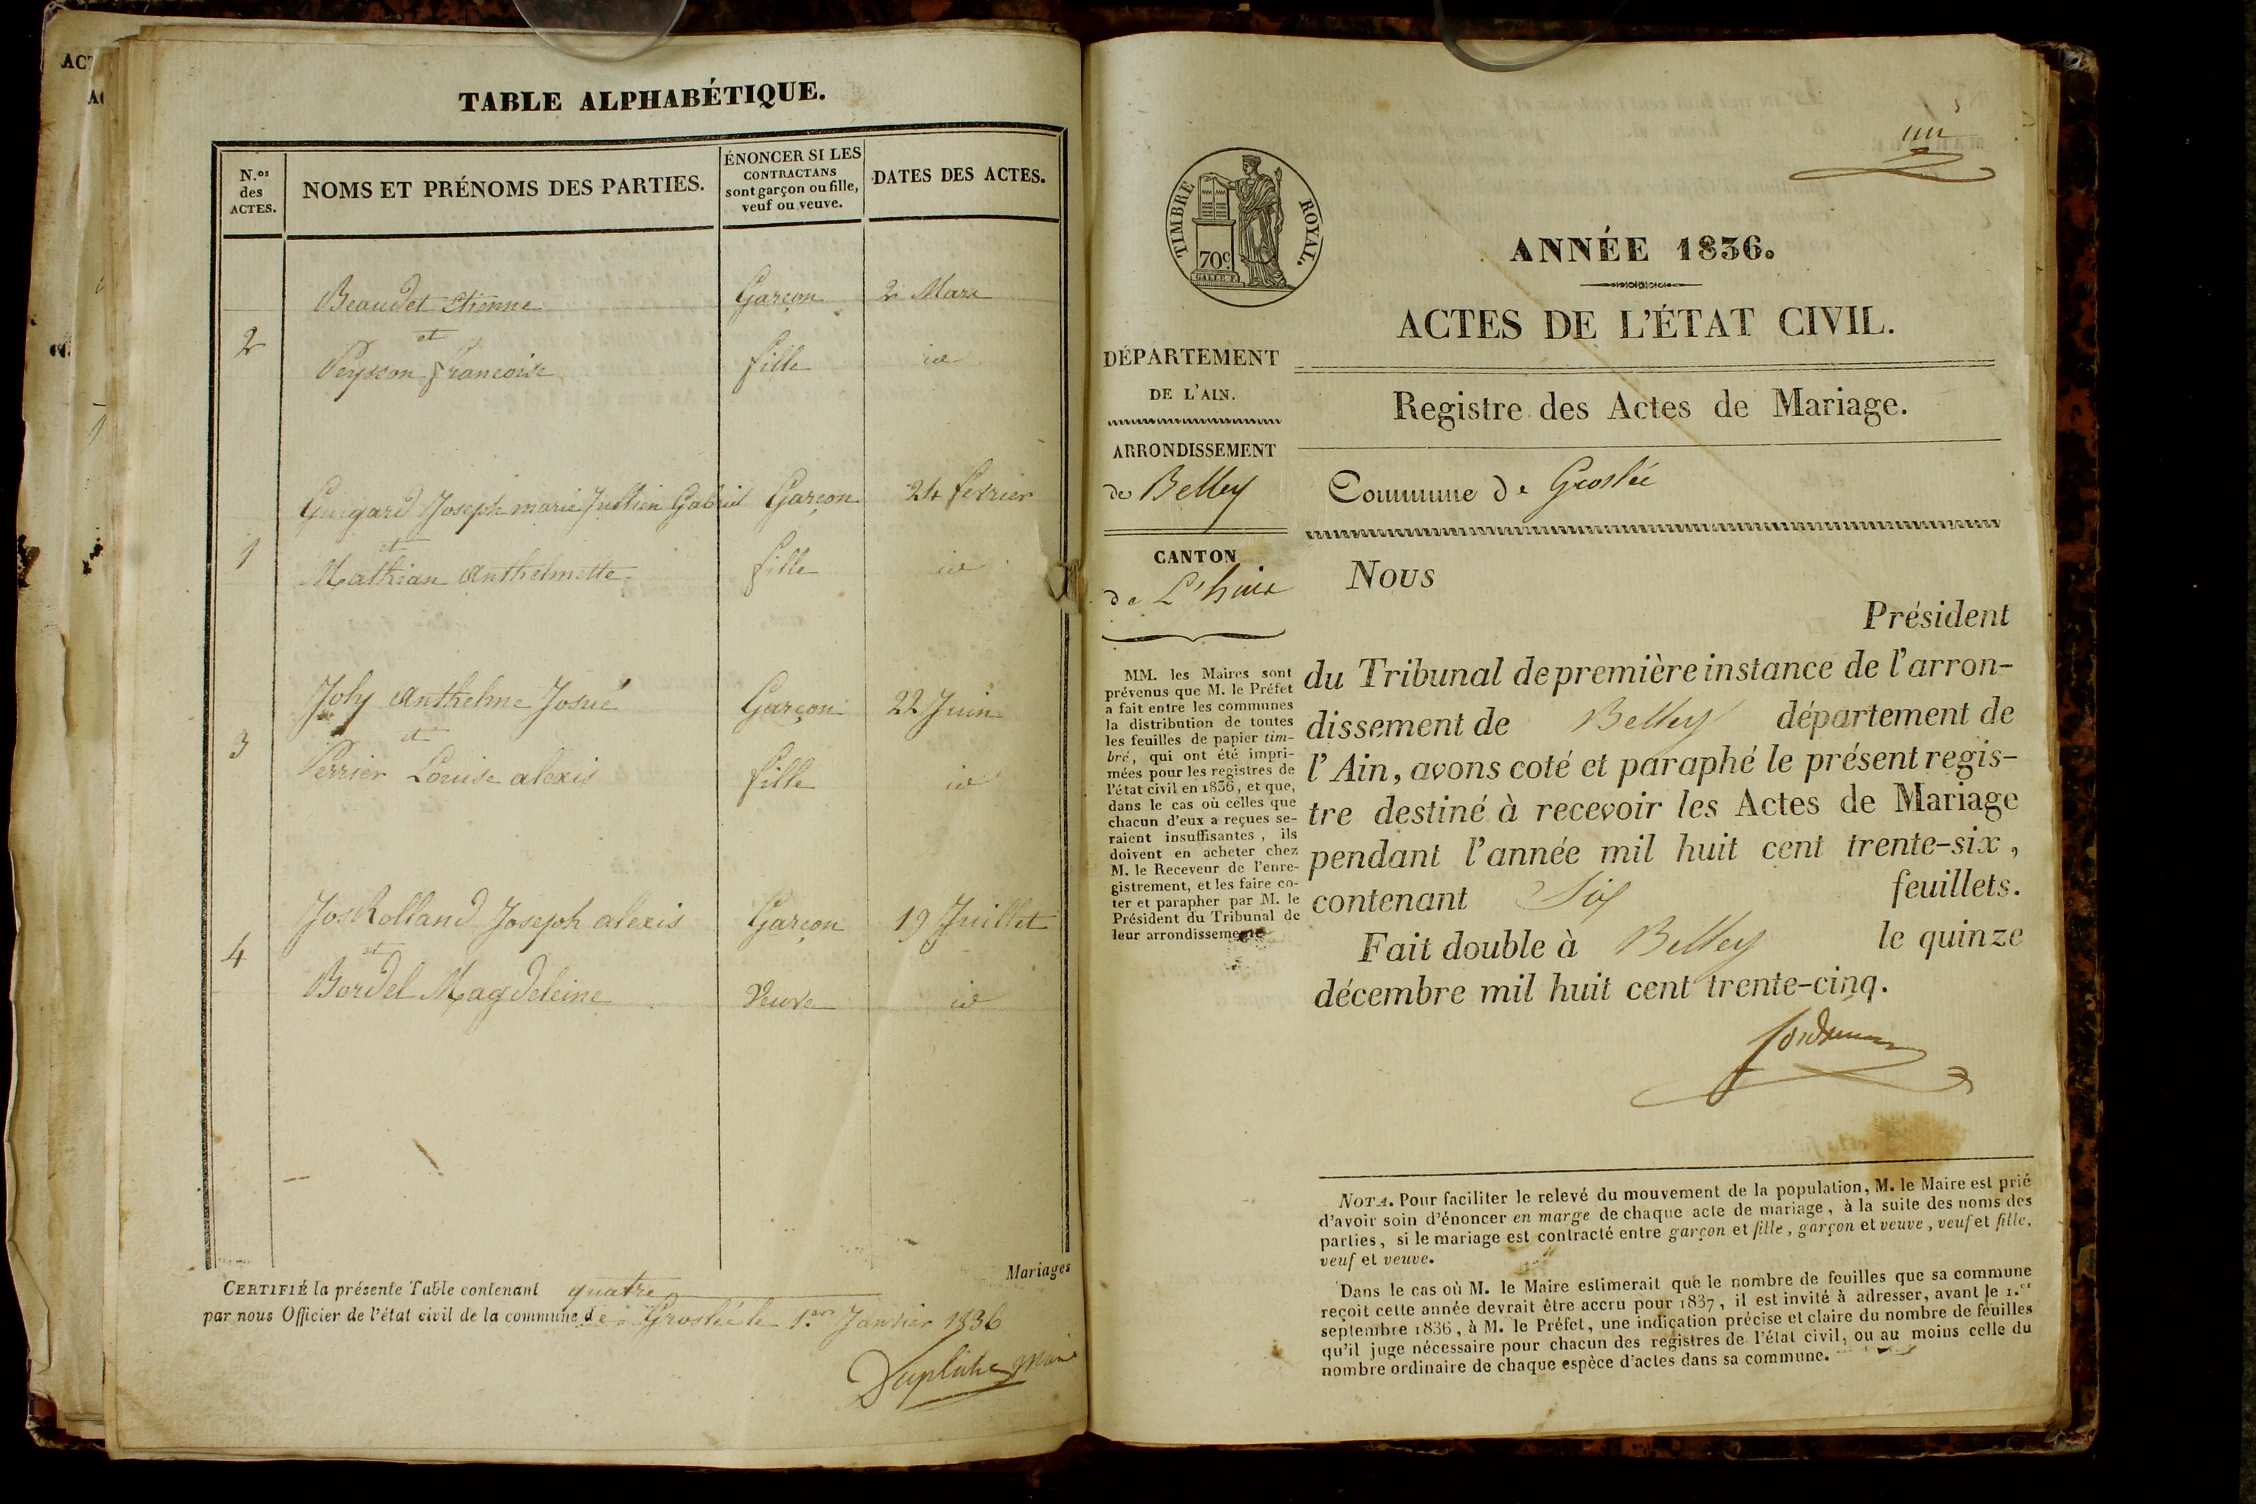 TABLE ALPHABÉTIQUE.
N.os
des
ACTES.
NOMS ET PRÉNOMS DES PARTIES.
ÉNONCER SI LES
CONTRACTANS
sont garçon ou fille,
veuf ou veuve.
DATES DES ACTES.
Beaudet Etienne Garçon 2 Mars
2 et
Peysson françoise fille id
Guigard Joseph marie Jullien Gabriel Garçon 24 fevrier
1 et
Mathian Anthelmette fille id
Joly Anthelme Josué Garçon 22 Juin
3 et
Perrier Louise alexis fille id
JosRolland Joseph alexis Garçon 19 Juillet
4 et
Bordel Magdeleine Veuve id
CERTIFIÉ la présente Table contenant quatre Mariages
par nous Officier de l'état civil de la commune de Groslée le 1.er Janvier 1836
maire
ACT
AC
TIMBRE ROYAL.
70c
ANNÉE 1836.
ACTES DE L'ÉTAT CIVIL.
Registre des Actes de Mariage.
Commune de Groslée
DÉPARTEMENT
DE L'AIN.
ARRONDISSEMENT
de Belley
CANTON
de L'huis
MM. les Maires sont
prévenus que M. le Préfet
a fait entre les communes
la distribution de toutes
les feuilles de papier tim-
bré, qui ont été impri-
mées pour les registres de
l'état civil en 1836, et que,
dans le cas où celles que
chacun d'eux a reçues se-
raient insuffisantes, ils
doivent en acheter chez
M. le Receveur de l'enre-
gistrement, et les faire co-
ter et parapher par M. le
Président du Tribunal de
leur arrondissement
Nous
Président
du Tribunal de première instance de l'arron-
dissement de Belley département de
l'Ain, avons coté et paraphé le présent regis-
tre destiné à recevoir les Actes de Mariage
pendant l'année mil huit cent trente-six,
contenant Six feuillets.
Fait double à Belley le quinze
décembre mil huit cent trente-cinq.
NOTA. Pour faciliter le relevé du mouvement de la population, M. le Maire est prié
d'avoir soin d'énoncer en marge de chaque acte de mariage, à la suite des noms des
parties, si le mariage est contracté entre garçon et fille, garçon et veuve, veuf et fille,
veuf et veuve.
Dans le cas où M. le Maire estimerait que le nombre de feuilles que sa commune
reçoit cette année devrait être accru pour 1837, il est invité à adresser, avant le 1.er
septembre 1836, à M. le Préfet, une indication précise et claire du nombre de feuilles
qu'il juge nécessaire pour chacun des registres de l'état civil, ou au moins celle du
nombre ordinaire de chaque espèce d'actes dans sa commune.